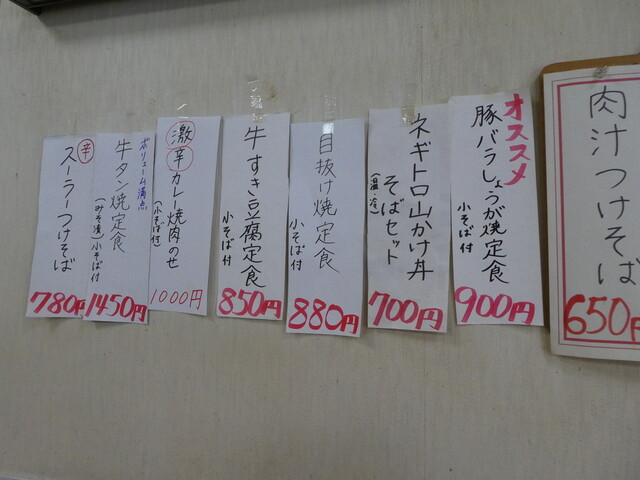 肉汁つけそば
650円
オススメ
豚バラしょうが焼定食
小そば付
900円
ネギトロ山かけ丼
そばセット
(温・冷)
700円
目抜け焼定食
小そば付
880円
牛すき豆腐定食
小そば付
850円
激辛カレー焼肉のせ
(小そば付)
1000円
ボリューム満点
牛タン焼定食
(みそ漬)小そば付
1450円
辛
スーラーつけそば
780円